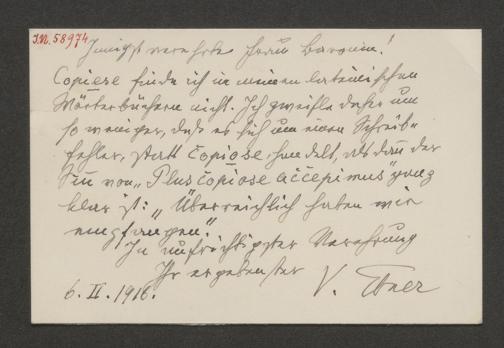 I.N. 58974
Innigst verehrte Frau Baronin!
Copiese finde ich in meinen lateinischen
Wörterbüchern nicht. Ich zweifle daher um
so weniger, daß es sich um einen Schreib-
fehler, statt copiose, handelt, als dann der
Sinn von „Plus copiose accepimus" ganz
klar ist: „Überreichlich haben wir
empfangen."
In aufrichtigster Verehrung
Ihr ergebenster
6. II. 1916. V. Ebner